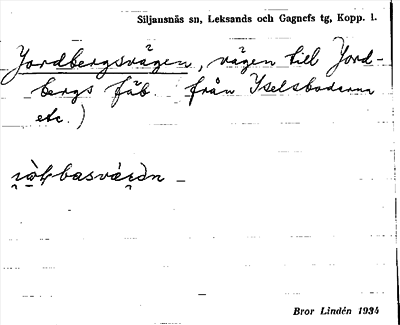 Siljansnäs sn, Leksands och Gagnefs tg, Kopp. l.
Jordbergsvägen, vägen till Jord-
bergs fäb. från Yselsbodarna
etc.)
Bror Lindén 1934